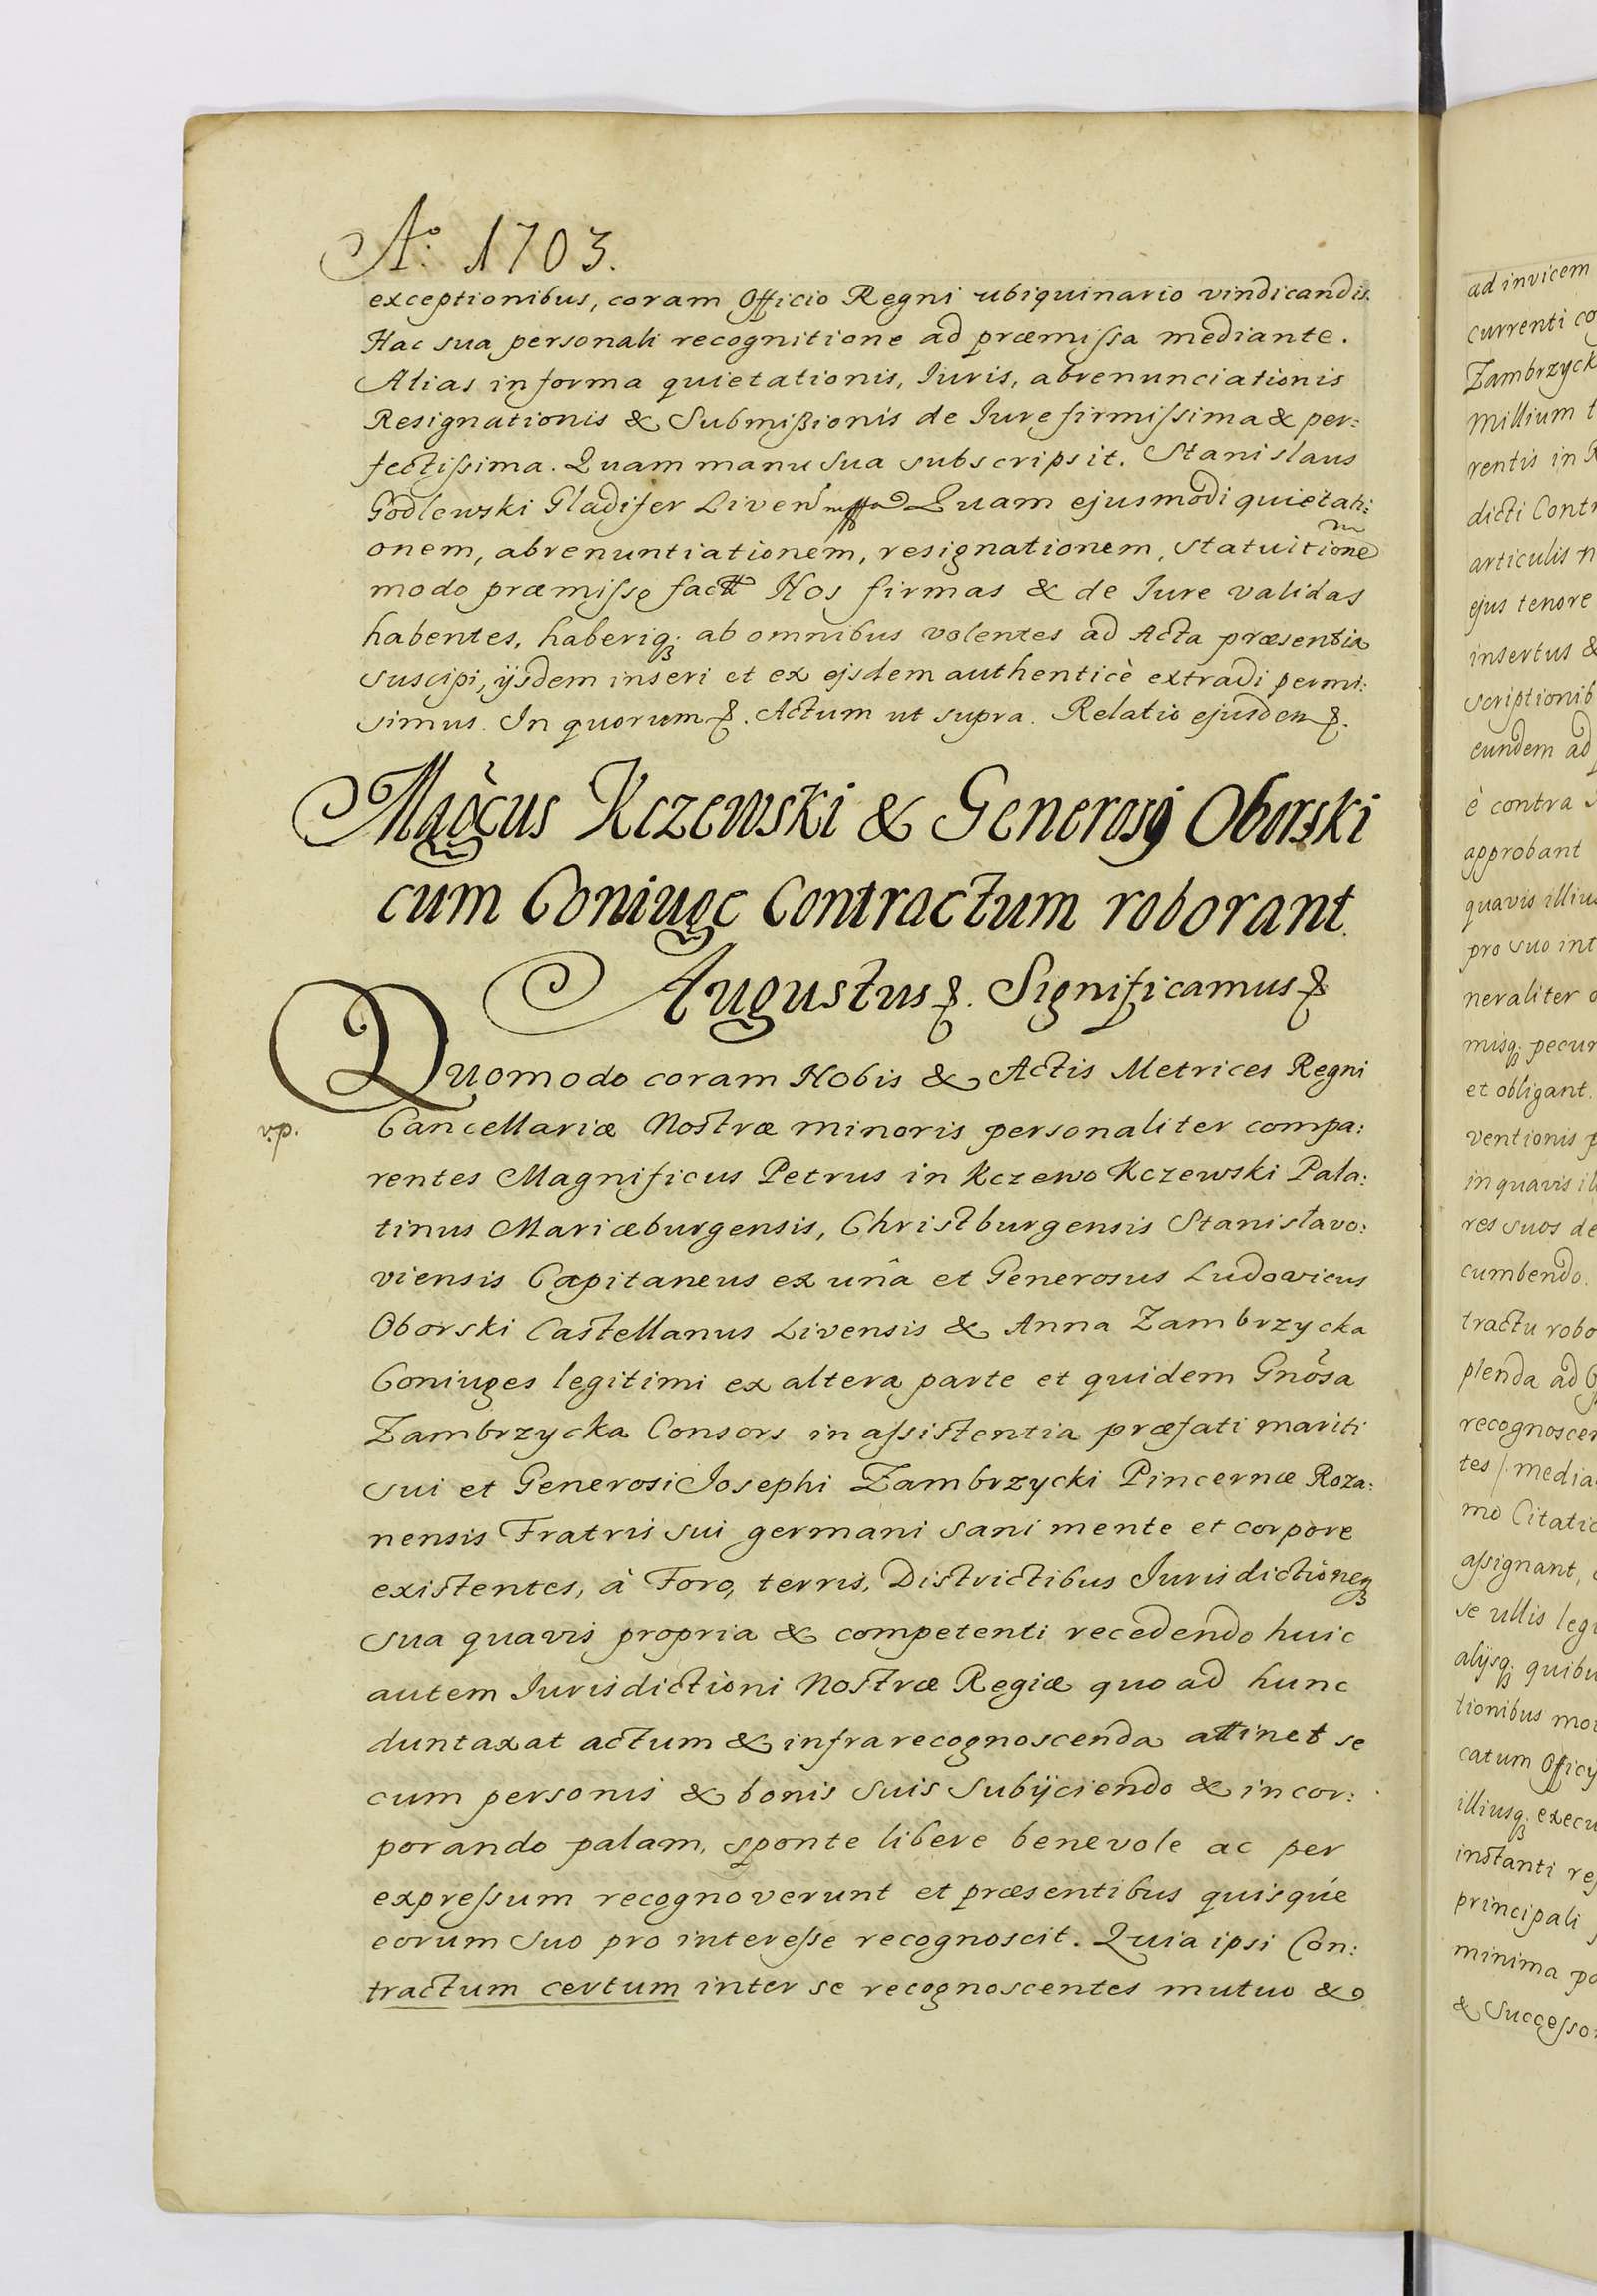 A.º 1703.
exceptionibus, coram Officio Regni ubiquinario vindicandis.
Hac sua personali recognitione ad præmissa mediante.
Alias in forma quietationis, Iuris, abrenunciationis
Resignationis & Submißionis de Iure firmissima & per:
fectissima. Quam manu sua subscripsit. Stanislaus
Godlewski Gladifer Liven mppa Quam ejusmodi quietati:
onem, abrenuntiationem, resignationem, statuitionem
modo præmisso fact Nos firmas & de Iure validas
habentes, haberiq; ab omnibus volentes ad Acta præsentia
suscipi, ijsdem inseri et ex ejsdem authenticè extradi permi:
simus. In quorum &. Actum ut supra. Relatio ejusdem &.
Magcus Kczewski & Generosg Oborski
cum Coniuge Contractum roborant.
Augustus &. Significamus &
Quomodo coram Nobis & Actis Metrices Regni
Cancellariæ Nostræ minoris personaliter compa:
rentes Magnificus Petrus in Kczewo Kczewski Pala:
tinus Mariæburgensis, Christburgensis Stanisłavo:
viensis Capitaneus ex unâ et Generosus Ludovicus
Oborski Castellanus Livensis & Anna Zambrzycka
Coniuges legitimi ex altera parte et quidem Gnosa
Zambrzycka Consors in assistentia præfati mariti
sui et Generosi Josephi Zambrzycki Pincernæ Roza:
nensis Fratris sui germani sani mente et corpore
existentes, à Foro, terris, Districtibus Iurisdictioneq;
sua quavis propria & competenti recedendo huic
autem Iurisdictioni Nostræ Regiæ quo ad hunc
duntaxat actum & infrarecognoscenda attinet se
cum personis & bonis suis subijciendo & incor:
porando palam, sponte libere benevole ac per
expressum recognoverunt et præsentibus quisque
eorum suo pro interesse recognoscit. Quia ipsi Con:
tractum certum inter se recognoscentes mutuo &
ad invicem
currenti
Zambrzyck
millium
rentis in
dicti
articulis
ejus tenore
insertus &
scriptionib
eundem ad
è contra
approbant
quavis illius
pro suo int
neraliter
misq; pecun
et obligant.
ventionis
in quavis
res suos de
cumbendo.
tractu robo
plenda ad
recognoscen
tes /: media
mo Citatio
assignant,
se ullis legi
alijsq; quibu
tionibus mo
catum Officij
illiusq; execu
instanti
principali
minima
& Successo